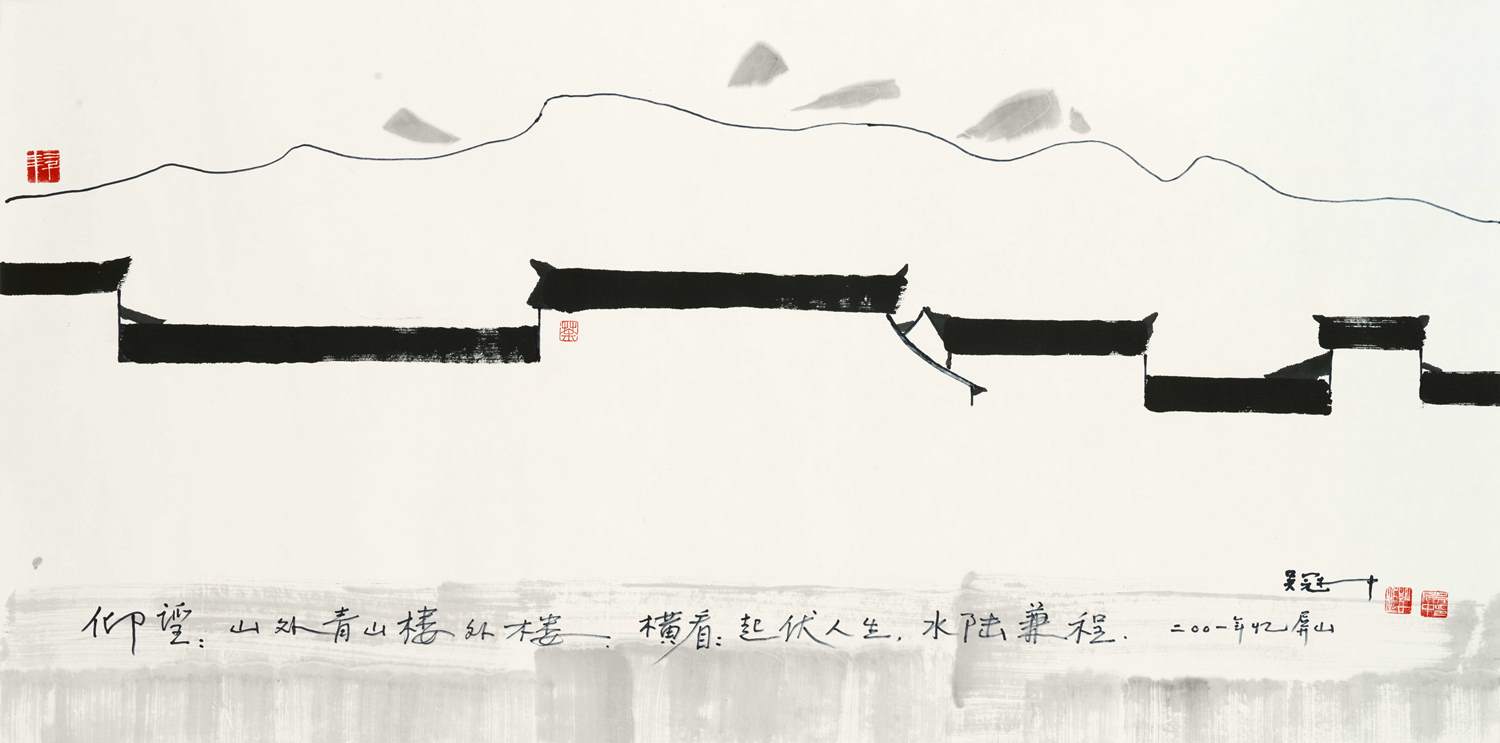 吴冠中
仰望：山外青山楼外楼．横看：起伏人生，水陆兼程．二〇〇一年忆屏山